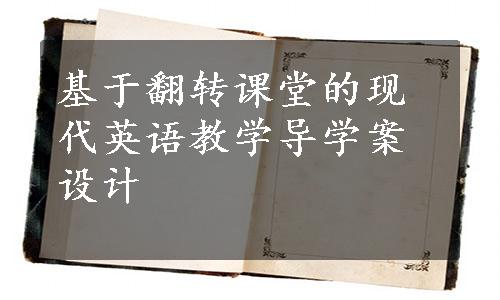 基于翻转课堂的现
代英语教学导学案
设计